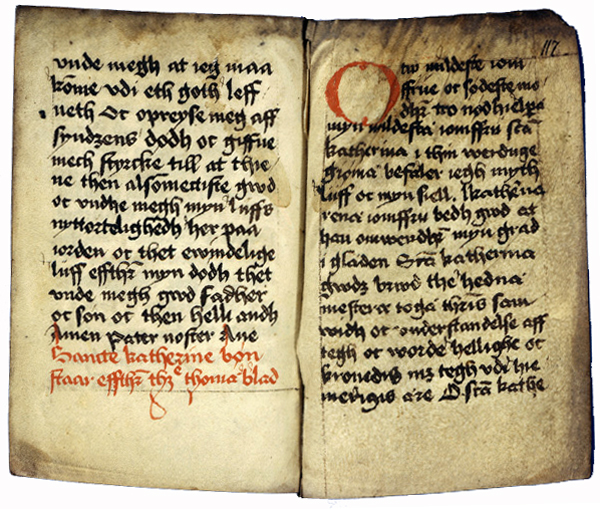 vnde megh at ieg maa
kome vdi eth goth leff
neth Oc opreyse meg aff
syndzens dodh oc giffue
mech styrcke till at thie
ne then alsomectiste gwd
oc vndhe megh myn luffs
nyttortelighedh her paa
iorden oc thet ewindelige
luff effthr myn dodh thet
vnde megh gwd fadher
oc son oc then helli andh
Amen Pater noster Aue
Sancte katherine bøn
staar effthr thz thoma blad
117
O tw mildeste iom
ffrue oc sødeste mo
dhr tro nodhielpa
myn mildesta iomffru sta
katherina i thin werduge
befaler iegh myth
luff oc myn siell. katheria
rena iomffru bedh gwd at
han omwerdhr myn grad
i gladen Sta katherina
gwdz brwd the hedna
mestera toga thris sam
widh oc onderstandelse aff
tegh oc worde hellighe oc
kronedis mz tegh vdi hie
merigis are O sta kathe